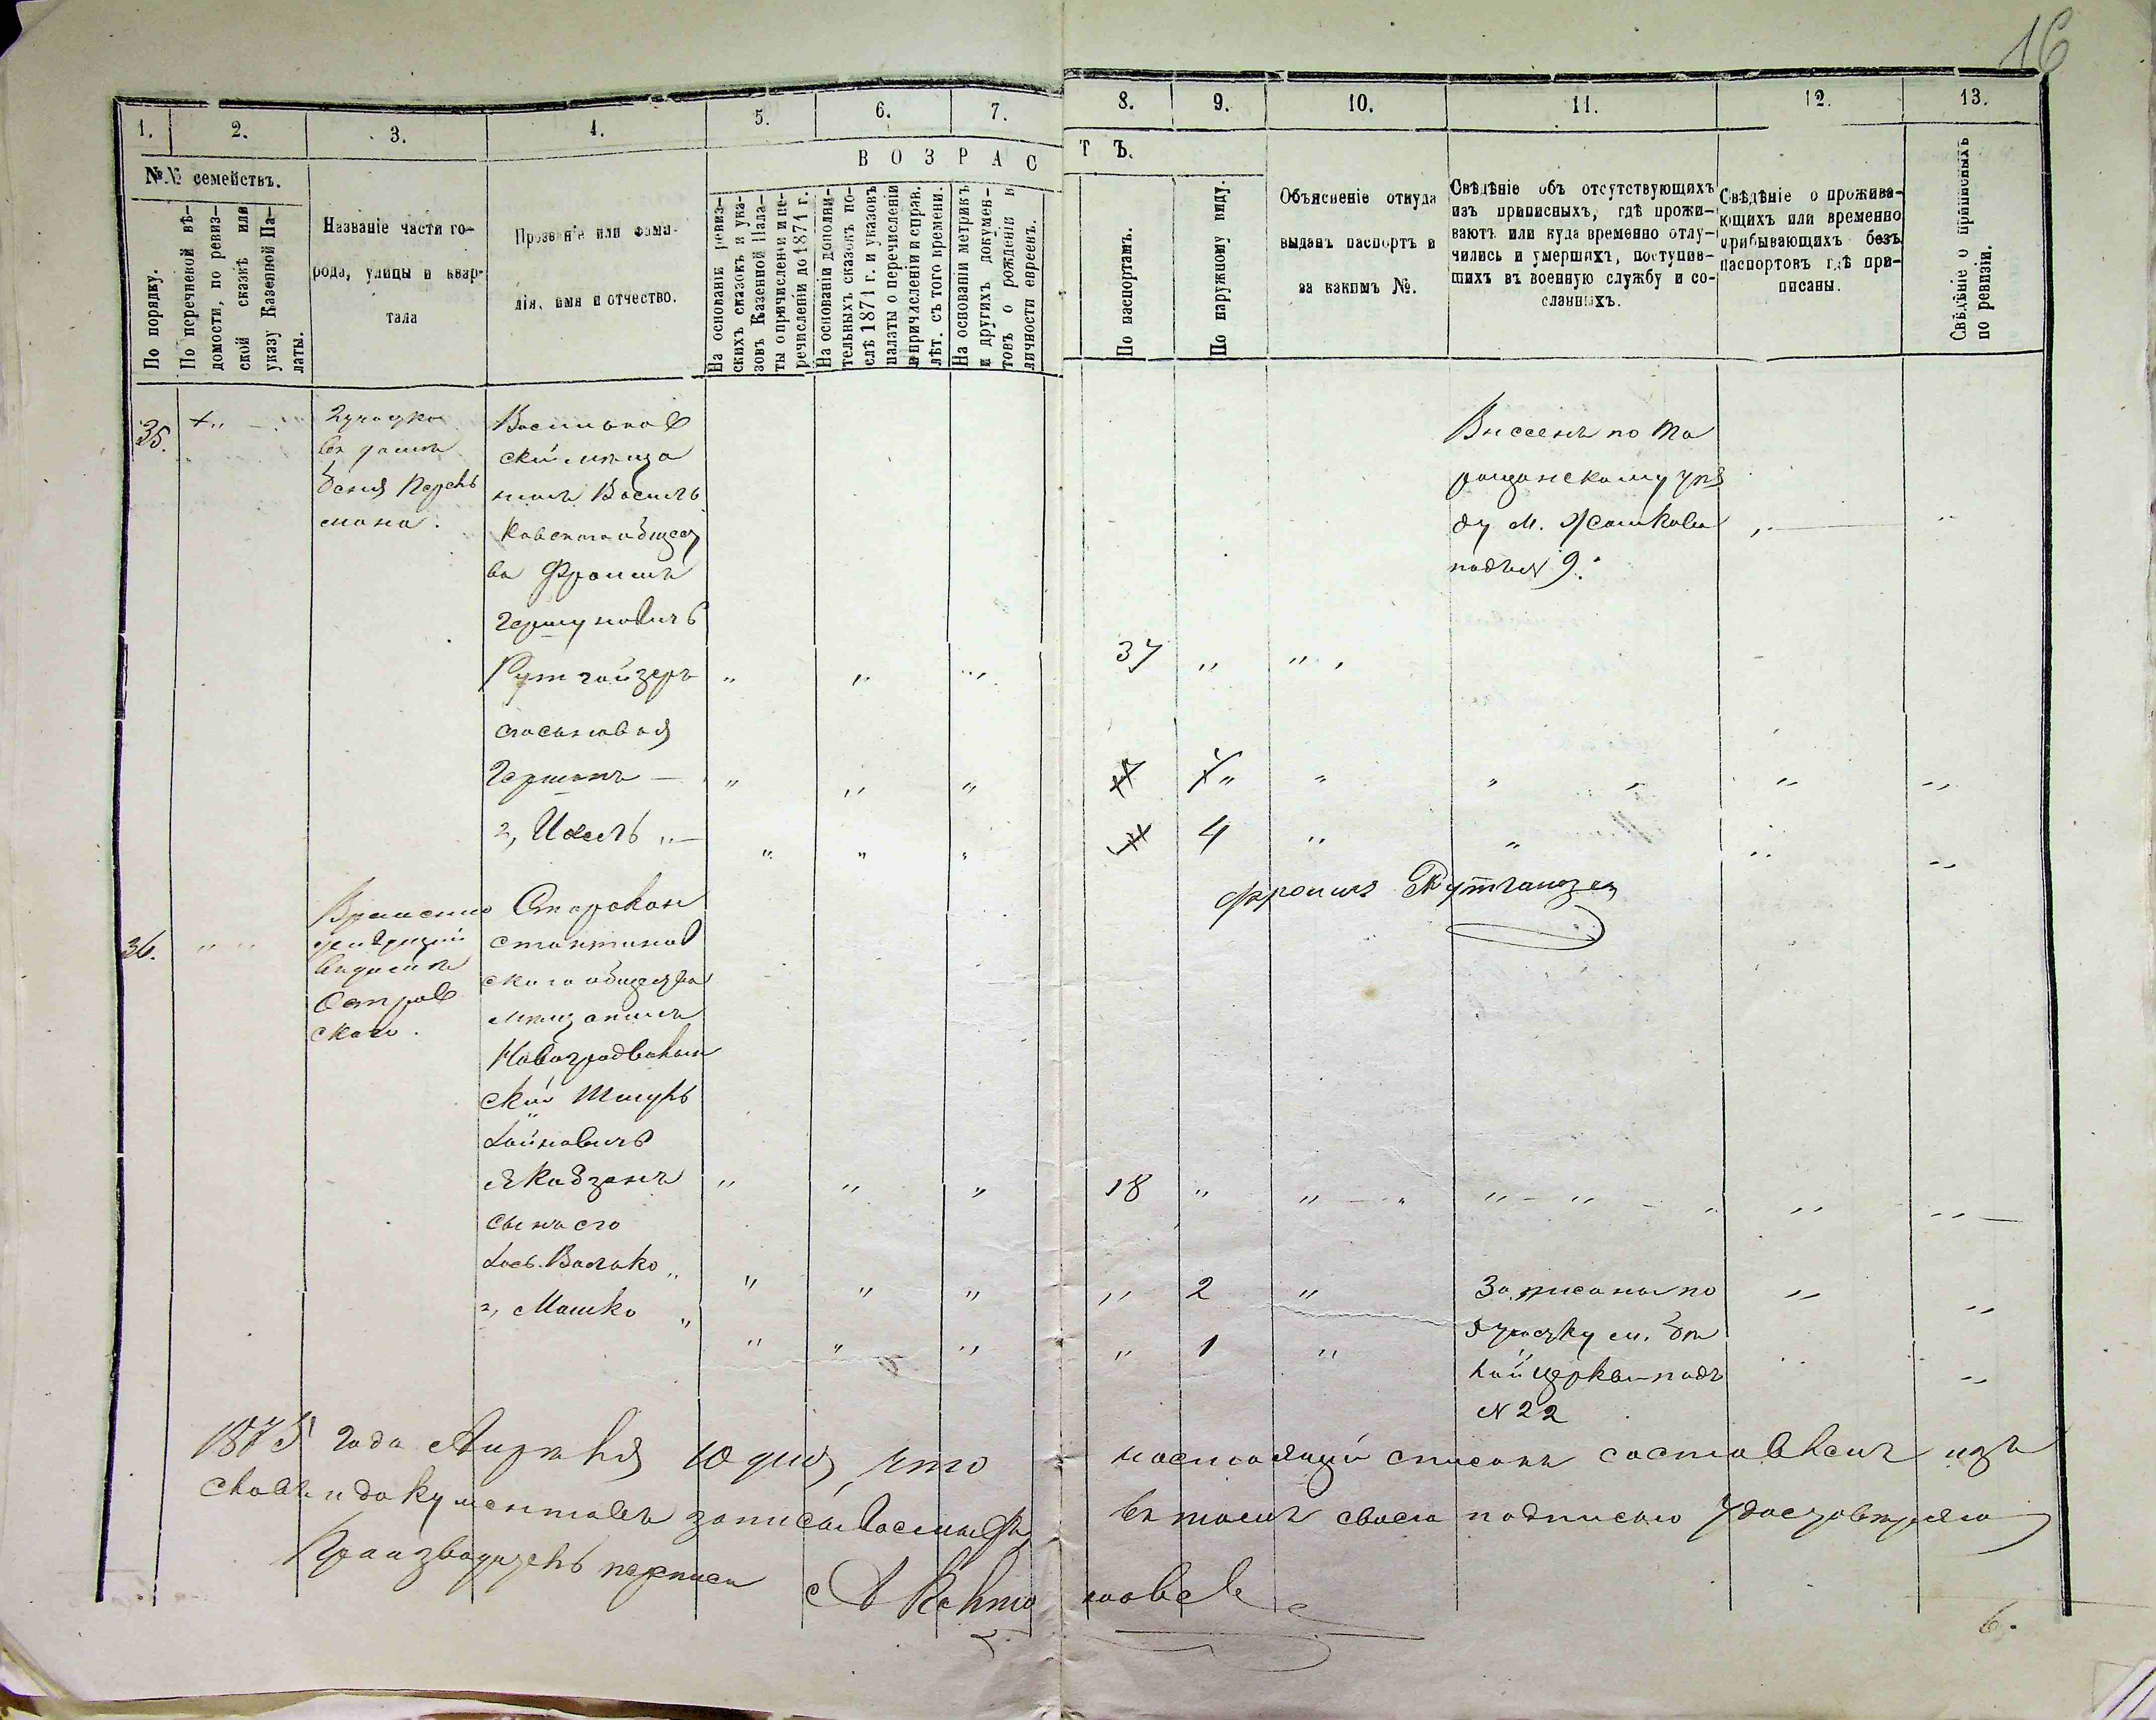 16
1. 2. 3. 4. 5. 6. 7. 8. 9. 10. 11. 12. 13.
№№ семействъ.
По порядку.
По перечневой вѣ-
домости, по ревиз-
ской сказкѣ или
указу Казенной Па-
латы.
Названіе части го-
рода, улицы и квар-
тала
Прозваніе или фами-
лія, имя и отчество.
ВОЗРАСТЪ.
На основаніи ревиз-
скихъ сказокъ и ука-
зовъ Казенной Пала-
ты о причисленіи и пе-
речисленіи до 1871 г.
На основаніи дополни-
тельныхъ сказокъ по-
слѣ 1871 г. и указовъ
палаты о перечисленіи
и причисленіи и справ.
лѣт. съ того времени.
На основаніи метрикъ
и другихъ докумен-
товъ о рожденіи и
личности евреевъ.
По паспортамъ.
По наружному виду.
Объясненіе откуда
выданъ паспортъ и
за какимъ №.
Свѣдѣніе объ отсутствующихъ
изъ приписныхъ, гдѣ прожи-
ваютъ или куда временно отлу-
чились и умершихъ, поступив-
шихъ въ военную службу и со-
сланныхъ.
Свѣдѣніе о прожива-
ющихъ или временно
прибывающихъ безъ
паспортовъ гдѣ при-
писаны.
Свѣдѣніе о приписныхъ
по ревизіи.
35.
в домѣ
Беня Перель
мана.
Васильков
скій мѣща
нинъ Василь
ковскаго общест
ва Фроимъ
Гершуновичъ
Рутгайзеръ 37
сыновья
Гершонъ
2, Ицель 4
Внесенъ по Та
ращанскому уѣз
ду м. Жашкова
подъ № 9.
Фроимъ Рутгайзер
36.
Временно
в домѣ
Остров
скаго.
Старокон
стантинов
скаго общества
мѣщанинъ
Новоградволын
скій
Хаймовичъ
18
сына его
Волько 2
2, Мошко 1
Записаны по
участку м. Бѣ
лой Церкви подъ
№ 22
1875 года Апрѣля 10 дня, что настоящій списокъ составленъ изъ
словъ и документовъ въ томъ своею подписью удостовѣряю
Производитель переписи
6.